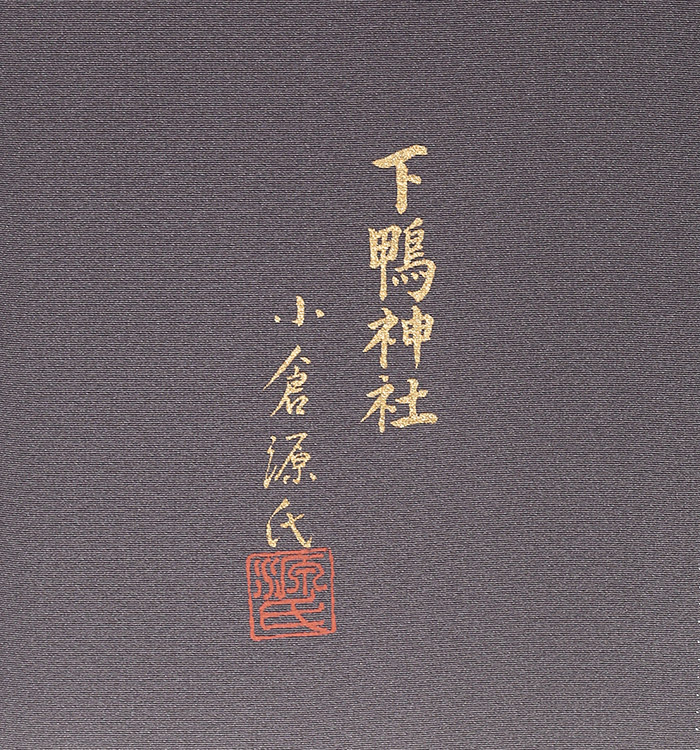 下鴨神社
小倉源氏
源氏